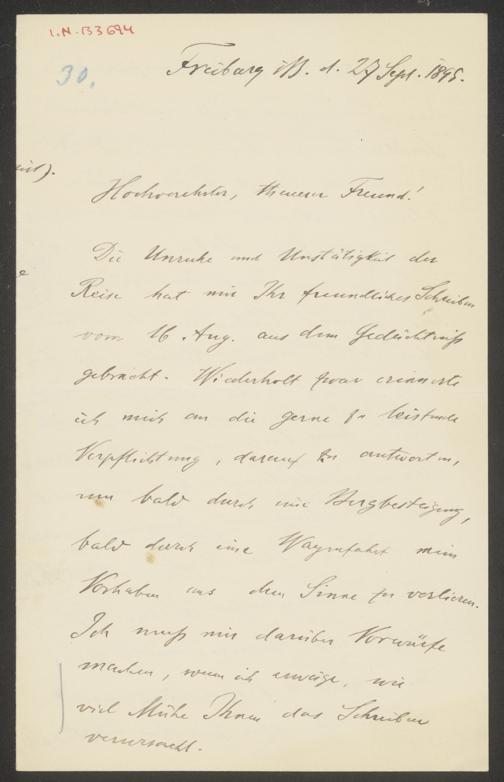 I.N. 133694
30.
Freiburg i/B. d. 27 Sept. 1895.
Hochverehrter, theurer Freund!
Die Unruhe und Unstätigkeit der
Reise hat mir Ihr freundliches Schreiben
vom 16. Aug. aus dem Gedächtniß
gebracht. Wiederholt zwar erinnerte
ich mich an die gerne zu leistende
Verpflichtung, darauf zu antworten,
um bald durch eine Bergbesteigung,
bald durch eine Wagenfahrt mein
Vorhaben aus dem Sinne zu verlieren.
Ich muß mir darüber Vorwürfe
machen, wenn ich erwäge, wie
viel Mühe Ihnen das Schreiben
verursacht.